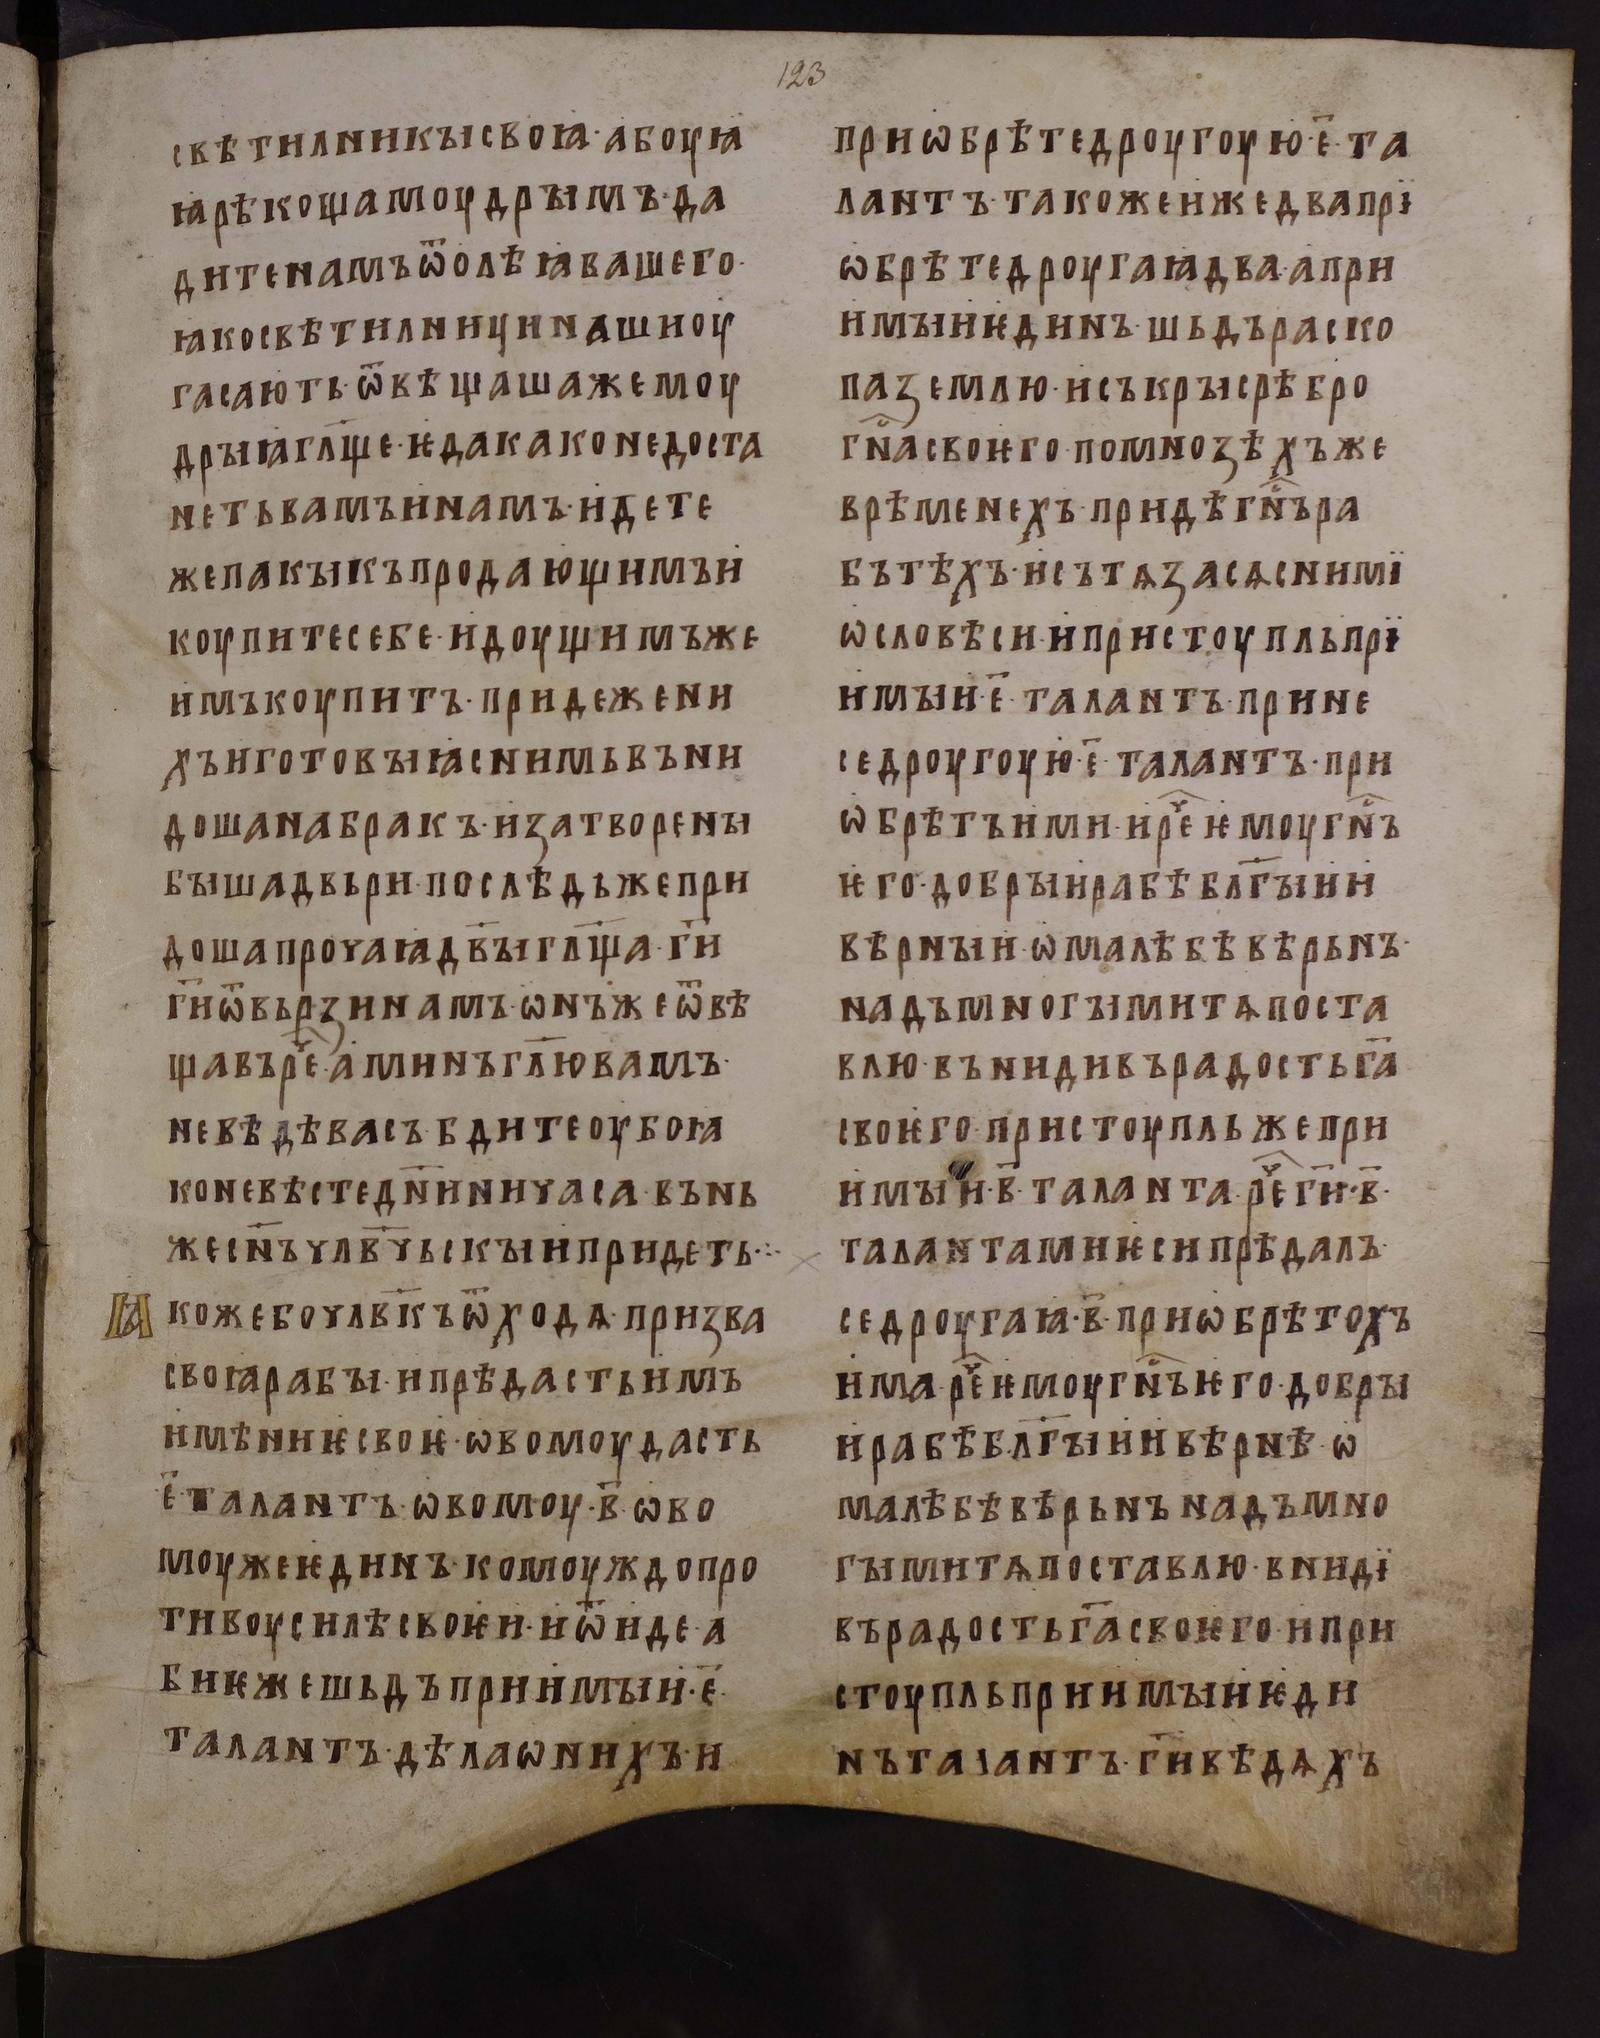 123
свѣтилникы своꙗ· а боуꙗ
ꙗ рѣкоша моудрымъ· да
дите намъ ѿ олѣꙗ вашего·
ꙗко свѣтилници наши оу
гасають· ѿвѣщаша же моу
дрыꙗ гл҃ще· ѥда како не доста
неть вамъ и намъ· идете
же пакы къ продающимъ и
коупите себе· идоущимъ же
имъ коупитъ· приде жени
хъ и готовыꙗ с нимь въни
доша на бракъ· и затворены
быша двьри· послѣдь же при
доша прочаꙗ дв҃ы гл҃ща· г҃и
г҃и ѿвьрзи намъ· ѡнъ же ѿвѣ
щавъ рⷱ҇е· аминъ гл҃ю вамъ·
не вѣдѣ васъ· бдите оубо ꙗ
ко не вѣсте дн҃и ни часа· въ нь
же сн҃ъ чл҃вч҃ьскыи придеть·:·
Ꙗкоже бо чл҃вкъ ѿходѧ· призва
своꙗ рабы· и прѣдасть имъ
имѣниѥ своѥ· ѡвомоу дасть
·е҃· талантъ· ѡвомоу ·в҃· ѡво
моу же ѥдинъ· комоуждо про
тивоу силѣ своѥи· и ѿиде· а
биѥ же шьдъ приимыи ·е҃·
талантъ· дѣла ѡ нихъ· и
приѡбрѣте дроугоую ·е҃· та
лантъ· такоже иже два прї
ѡбрѣте дроугаꙗ два· а при
имыи ѥдинъ· шьдъ раско
па землю· и съкры срѣбро
гⷭ҇на своѥго· по мнозѣхъ же
врѣменехъ· придѣ гⷭ҇нъ ра
бъ тѣхъ· и сътѧза сѧ с нимї
ѡ словѣси· и пристоупль прї
имыи ·е҃· талантъ· прине
се дроугоую ·е҃· талантъ· при
ѡбрѣтъ ими· и рⷱ҇е ѥмоу гⷭ҇нъ
ѥго· добрыи рабѣ бл҃гыи и
вѣрныи· ѡ малѣ бѣ вѣрьнъ·
надъ многыми тѧ поста
влю· въниди въ радость г҃а
своѥго· пристоупль же при
имыи ·в҃· таланта· рⷱ҇е г҃и· ·в҃·
таланта ми ѥси прѣдалъ·
се дроугаꙗ ·в҃· приѡбрѣтохъ
има· рⷱ҇е ѥмоу гⷭ҇нъ ѥго· добры
и рабѣ бл҃гыи и вѣрнѣ· ѡ
малѣ бѣ вѣрьнъ надъ мно
гыми тѧ поставлю· внидї
въ радость г҃а своѥго· и при
стоупль приимыи ѥди
нъ талантъ· г҃и вѣдѧхъ